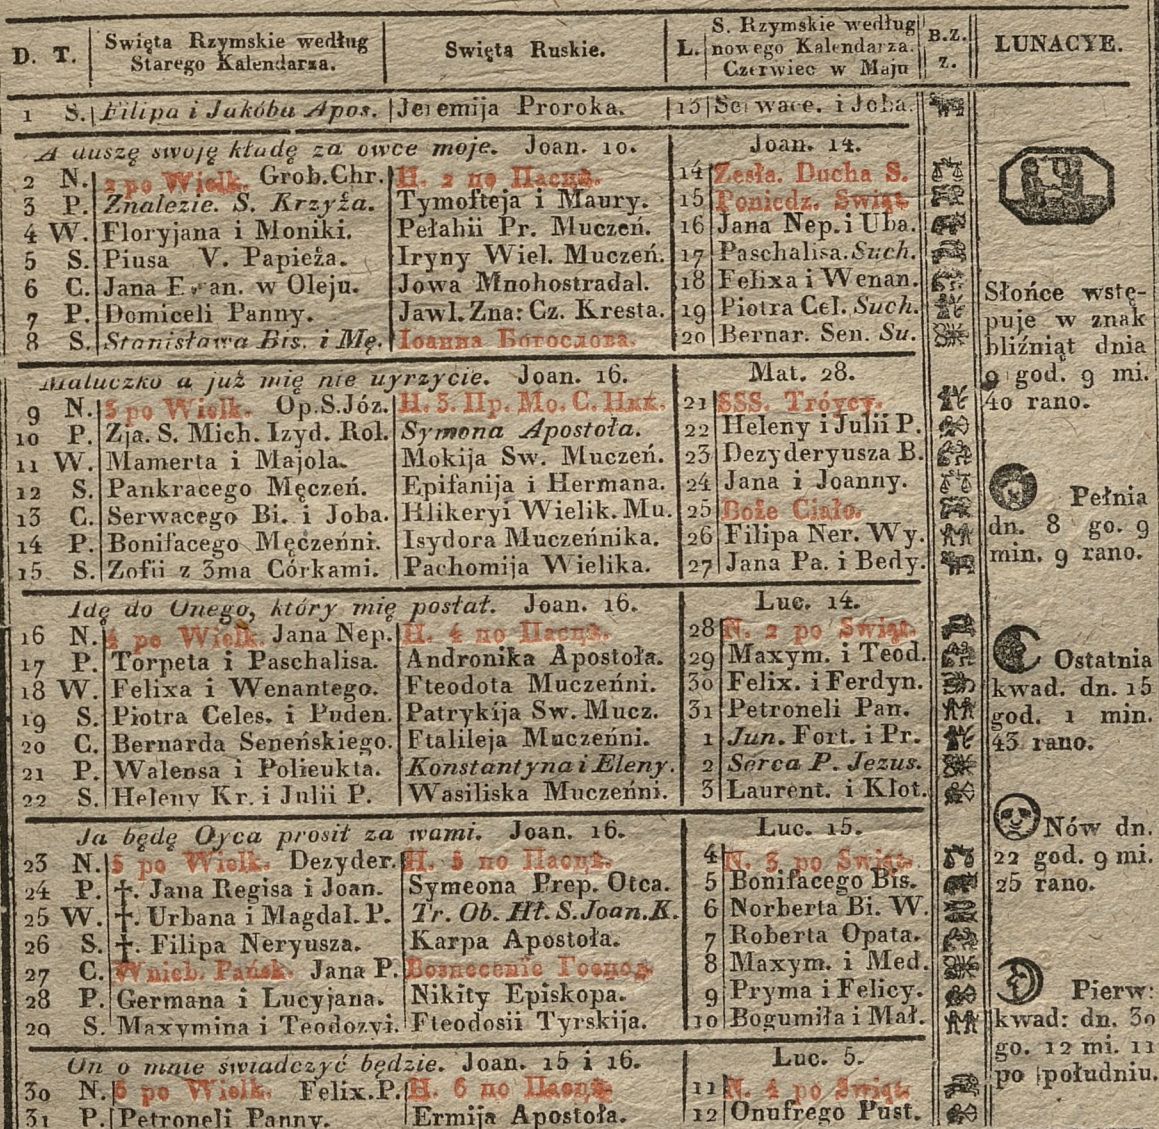 D. T. Święta Rzymskie według Starego Kalendarza. Święta Ruskie. L. S. Rzymskie według nowego Kalendarza. Czerwiec w Maju B.Z. z. LUNACYE.
1 S. Filipa i Jakóba Apos. Jeremija Proroka. 13 Serwace. i Joba.
A duszę swoję kładę za owce moje. Joan. 10. Joan. 14.
2 N. 2 po Wielk. Grob.Chr. Н. 2 по Пасцѣ. 14 Zesła. Ducha S.
3 P. Znalezie. S. Krzyża. Tymofteja i Maury. 15 Poniedz. Swiąt.
4 W. Floryjana i Moniki. Pełahii Pr. Muczeń. 16 Jana Nep. i Uba.
5 S. Piusa V. Papieża. Iryny Wiel. Muczeń. 17 Paschalisa. Such.
6 C. Jana Ewan. w Oleju. Jowa Mnohostradal. 18 Felixa i Wenan.
7 P. Domiceli Panny. Jawl. Zna: Cz. Kresta. 19 Piotra Cel. Such.
8 S. Stanisława Bis. i Mę. Іоанна Богослова. 20 Bernar. Sen. Su.
Słońce wstę-
puje w znak
bliźniąt dnia
9 god. 9 mi.
40 rano.
Maluczko a już mię nie uyrzycie. Joan. 16. Mat. 28.
9 N. 3 po Wielk. Op.S.Józ. Н. 3. Пр. Мо. С. 21 SSS. Tróycy.
10 P. Zja. S. Mich. Izyd. Rol. Symona Apostoła. 22 Heleny i Julii P.
11 W. Mamerta i Majola. Mokija Sw. Muczeń. 23 Dezyderyusza B.
12 S. Pankracego Męczeń. Epifanija i Hermana. 24 Jana i Joanny.
13 C. Serwacego Bi. i Joba. Hlikeryi Wielik. Mu. 25 Boże Ciało.
14 P. Bonifacego Męczeńni. Isydora Muczeńnika. 26 Filipa Ner. Wy.
15 S. Zofii z 3ma Córkami. Pachomija Wielika. 27 Jana Pa. i Bedy.
Pełnia
dn. 8 go. 9
min. 9 rano.
Idę do Onego, który mię posłał. Joan. 16. Luc. 14.
16 N. 4 po Wielk. Jana Nep. Н. 4 по Пасцѣ. 28 N. 2 po Swiąt.
17 P. Torpeta i Paschalisa. Andronika Apostoła. 29 Maxym. i Teod.
18 W. Felixa i Wenantego. Fteodota Muczeńni. 30 Felix. i Ferdyn.
19 S. Piotra Celes. i Puden. Patrykija Sw. Mucz. 31 Petroneli Pan.
20 C. Bernarda Seneńskiego. Ftalileja Muczeńni. 1 Jun. Fort. i Pr.
21 P. Walensa i Polieukta. Konstantyna i Eleny. 2 Serca P. Jezus.
22 S. Heleny Kr. i Julii P. Wasiliska Muczeńni. 3 Laurent. i Kłot.
Ostatnia
kwad. dn. 15
god. 1 min.
43 rano.
Ja będę Oyca prosił za wami. Joan. 16. Luc. 15.
23 N. 5 po Wielk. Dezyder. Н. 5 по Пасцѣ. 4 N. 3 po Swiąt.
24 P. †. Jana Regisa i Joan. Symeona Prep. Otca. 5 Bonifacego Bis.
25 W. †. Urbana i Magdal. P. Tr. Ob. Hł. S. Joan. K. 6 Norberta Bi. W.
26 S. †. Filipa Neryusza. Karpa Apostoła. 7 Roberta Opata.
27 C. Wnieb. Pańsk. Jana P. Вознесение Господ. 8 Maxym. i Med.
28 P. Germana i Lucyjana. Nikity Episkopa. 9 Pryma i Felicy.
29 S. Maxymina i Teodozyi. Fteodosii Tyrskija. 10 Bogumiła i Mał.
Nów dn.
22 god. 9 mi.
25 rano.
On o mnie świadczyć będzie. Joan. 15 i 16. Luc. 5.
30 N. 6 po Wielk. Felix.P. Н. 6 по Пасцѣ. 11 N. 4 po Swiąt.
31 P. Petroneli Panny. Ermija Apostoła. 12 Onufrego Pust.
Pierw:
kwad: dn. 30
go. 12 mi. 11
po południu.